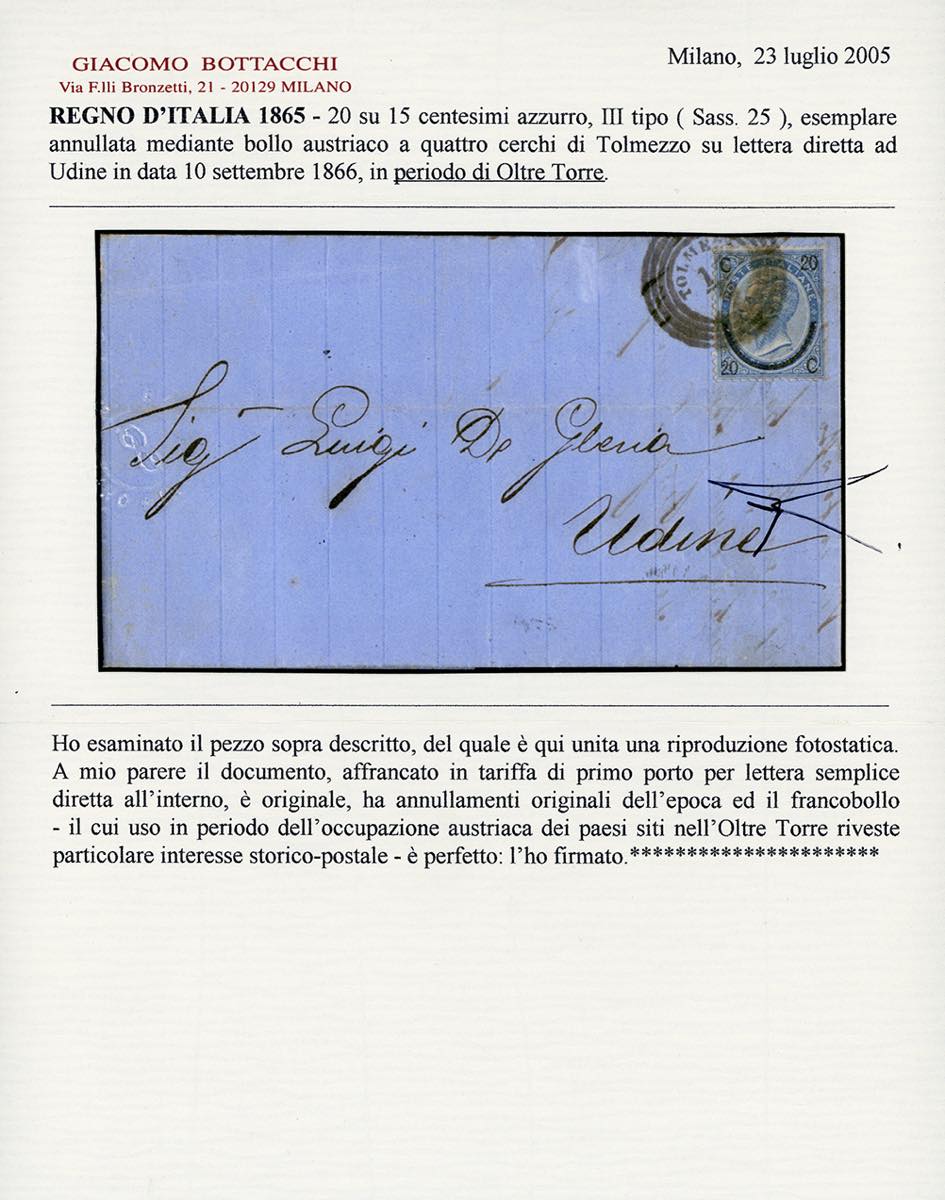 GIACOMO BOTTACCHI
Via F.lli Bronzetti, 21 - 20129 MILANO
Milano, 23 luglio 2005
REGNO D'ITALIA 1865 - 20 su 15 centesimi azzurro, III tipo ( Sass. 25 ), esemplare
annullata mediante bollo austriaco a quattro cerchi di Tolmezzo su lettera diretta ad
Udine in data 10 settembre 1866, in periodo di Oltre Torre.
TOLME
C 20
POSTE ITALIANE
20 C
Sigr Luigi De Gleria
Udine
Ho esaminato il pezzo sopra descritto, del quale è qui unita una riproduzione fotostatica.
A mio parere il documento, affrancato in tariffa di primo porto per lettera semplice
diretta all'interno, è originale, ha annullamenti originali dell'epoca ed il francobollo
- il cui uso in periodo dell'occupazione austriaca dei paesi siti nell'Oltre Torre riveste
particolare interesse storico-postale - è perfetto: l'ho firmato.**********************